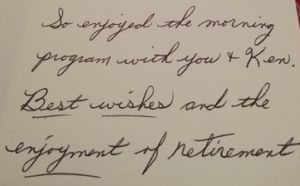 So enjoyed the morning
program with you & Ken.
Best wishes and the
enjoyment of retirement